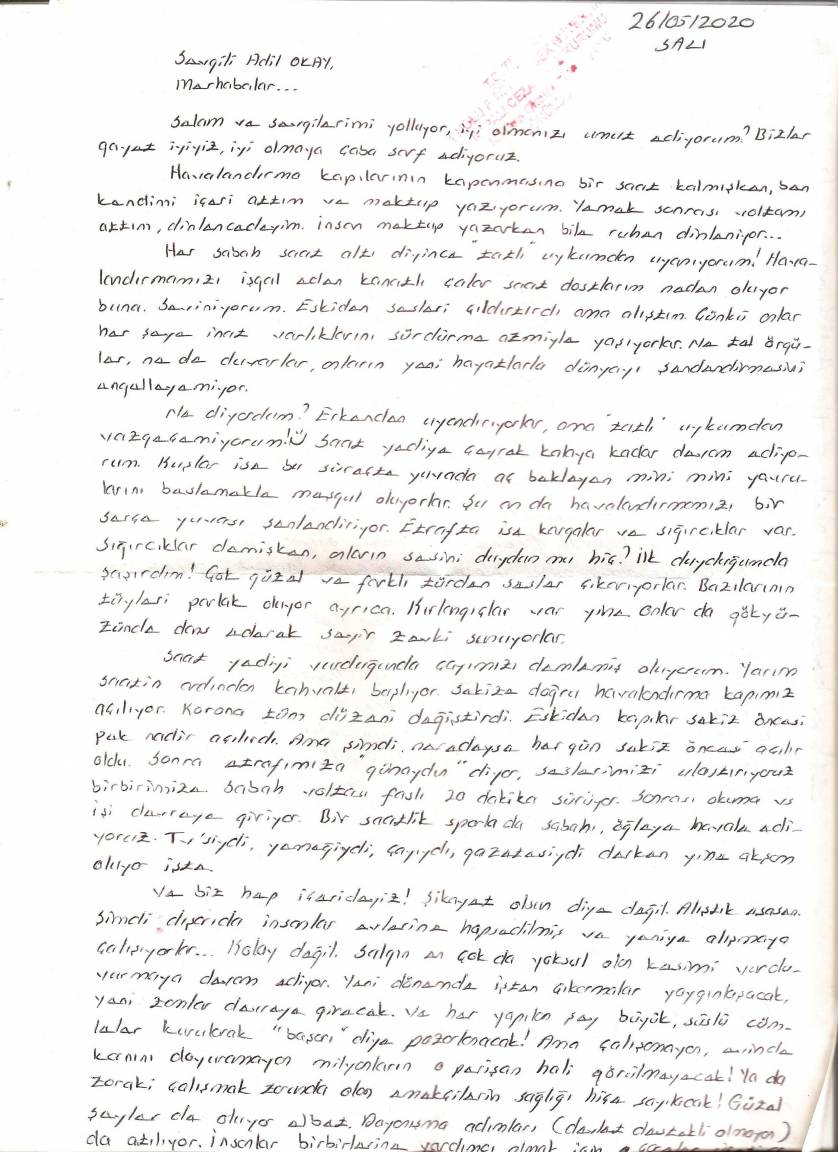 26/05/2020
SALI
Sevgili Adil OKAY,
Merhabalar...
Selam ve sevgilerimi yolluyor, iyi olmanızı umut ediyorum? Bizler
gayet iyiyiz, iyi olmaya çaba sarf ediyoruz.
Havalandırma kapılarının kapanmasına bir saat kalmışken, ben
kendimi içeri attım ve mektup yazıyorum. Yemek sonrası voltamı
attım, dinlencedeyim. İnsan mektup yazarken bile ruhen dinleniyor...
Her sabah saat altı deyince "tatlı" uykumdan uyanıyorum! Hava-
landırmamızı işgal eden kanatlı çalar saat dostlarım neden oluyor
buna. Seviniyorum. Eskiden sesleri çıldırtırdı ama alıştım. Çünkü onlar
her şeye inat varlıklarını sürdürme azmiyle yaşıyorlar. Ne tel örgü-
ler, ne de duvarlar, onların yeni hayatlarla dünyayı şenlendirmesini
engelleyemiyor.
Ne diyordum? Erkenden uyandırıyorlar, ama "tatlı" uykumdan
vazgeçemiyorum! Saat yediye çeyrek kalaya kadar devam ediyo-
rum. Kuşlar ise bu süreçte yuvada aç bekleyen mini mini yavru-
larını beslemekle meşgul oluyorlar. Şu an da havalandırmamızı bir
serçe yuvası şenlendiriyor. Etrafta ise kargalar ve sığırcıklar var.
Sığırcıklar demişken, onların sesini duydun mu hiç? İlk duyduğumda
şaşırdım! Çok güzel ve farklı türden sesler çıkarıyorlar. Bazılarının
tüyleri parlak oluyor ayrıca. Kırlangıçlar var yine onlar da gökyü-
zünde dans ederek seyir zevki sunuyorlar.
Saat yediyi vurduğunda çayımızı demlemiş oluyorum. Yarım
saatin ardından kahvaltı başlıyor. Sekize doğru havalandırma kapımız
açılıyor. Korona tüm düzeni değiştirdi. Eskiden kapılar sekiz öncesi
pek nadir açılırdı. Ama şimdi, neredeyse her gün sekiz öncesi açılır
oldu. Sonra etrafımıza "günaydın" diyor, seslerimizi ulaştırıyoruz
birbirimize. Sabah voltası faslı 20 dakika sürüyor. Sonrası okuma vs
işi devreye giriyor. Bir saatlik sporla da sabahı, öğleye havale edi-
yoruz. Tv'siydi, yemeğiydi, çayıydı, gazetesiydi derken yine akşam
oluyor işte.
Ve biz hep içerideyiz! Şikayet olsun diye değil. Alıştık esasen.
Şimdi dışarıda insanlar evlerine hapsedilmiş ve yeniye alışmaya
çalışıyorlar... Kolay değil. Salgın en çok da yoksul olan kesimi vurdu-
vurmaya devam ediyor. Yeni dönemde işten çıkarmalar yaygınlaşacak,
yeni zamlar devreye girecek. Ve her yapılan şey büyük, süslü cüm-
leler kurularak "başarı" diye pazarlanacak! Ama çalışamayan, evinde
karnını doyuramayan milyonların o perişan hali görülmeyecek! Ya da
zoraki çalışmak zorunda olan emekçilerin sağlığı hiçe sayılacak! Güzel
şeyler de oluyor elbet. Dayanışma adımları (devlet destekli olmayan)
da atılıyor. İnsanlar birbirlerine yardımcı olmak için